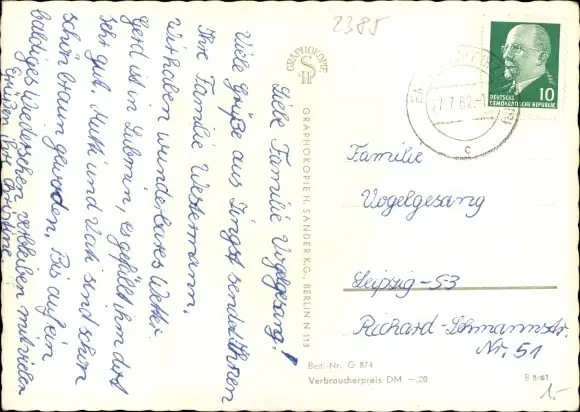 2385
Liebe Familie Vogelgesang!
Viele Grüße aus Zingst sendet Ihnen
Ihre Familie Westermann.
Wir haben wunderbares Wetter.
Gerd ist in Lubmin, es gefällt ihm dort
sehr gut. Mutti und Vati sind schon
schön braun geworden. Bis auf ein
baldiges Wiedersehen verbleiben mit vielen
Grüßen
GRAPHOKOPIE
H S
GRAPHOKOPIE H. SANDER K.G. BERLIN N 113
DEUTSCHE
DEMOKRATISCHE REPUBLIK
10
c
Familie
Vogelgesang
Leipzig-S3
Richard-Lehmannstr.
Nr. 51
Best.-Nr. G 874
Verbraucherpreis DM —.20
B 8/61
1.-